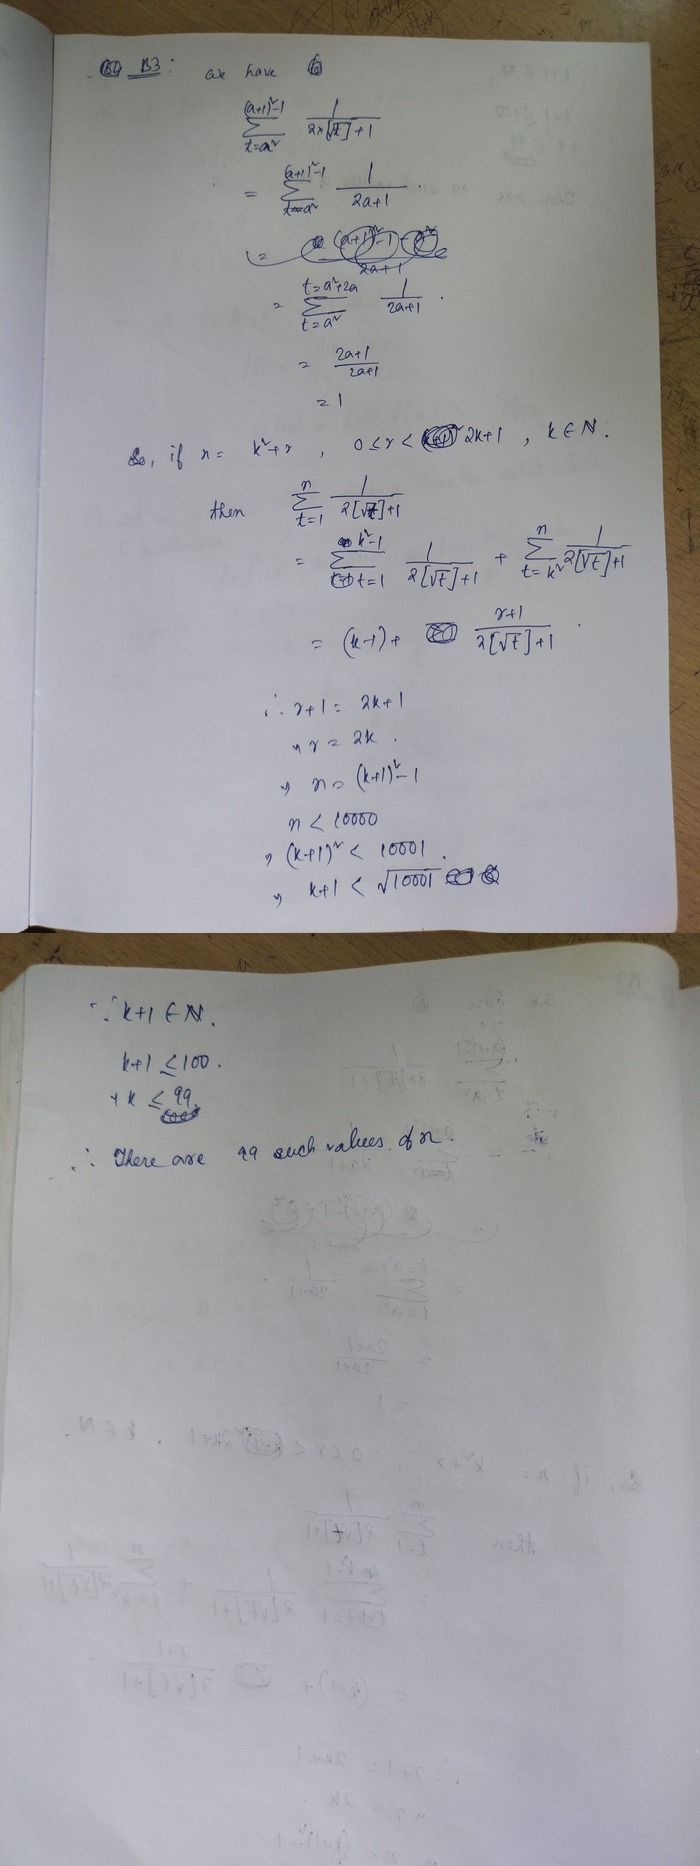 B3: we have
(a+1)²-1
∑ 1/(2×[√t]+1)
t=a²
(a+1)²-1
= ∑ 1/(2a+1).
t=a²
= (a+1)²-1-a²/2a+1
t=a²+2a
= ∑ 1/(2a+1).
t=a²
= 2a+1/2a+1
= 1
So, if n = k²+r, 0≤r< 2k+1, k∈N.
then n∑t=1 1/(2[√t]+1)
= k²-1∑t=1 1/(2[√t]+1) + n∑t=k² 1/(2[√t]+1)
= (k-1)+ r+1/(2[√t]+1).
∴ r+1 = 2k+1
⇒ r = 2k.
⇒ n = (k+1)²-1
n < 10000
⇒ (k+1)² < 10001.
⇒ k+1 < √10001
∵ k+1 ∈ N.
k+1 ≤ 100.
⇒ k ≤ 99.
∴ There are 99 such values of n.